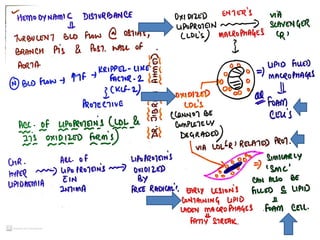 * HEMODYNAMIC DISTURBANCE
TURBULENT BLD FLOW @ OSTIAS,
BRANCH Pt's & POST. WALL OF
AORTA
(N) BLD FLOW → ↑ OF → KRIPPEL-LIKE
FACTOR-2
(KLF-2)
PROTECTIVE
ACC. OF LIPOPROTEINS (LDL &
ITS OXIDIZED FORM'S)
CHR.
HYPER
LIPIDAEMIA
→ ACC. OF
LIPOPROTEINS
IN
INTIMA
→ LIPOPROTEIN'S
OXIDIZED
BY
FREE RADICAL'S.
OXIDIZED
LIPOPROTEIN
(LDL'S)
ENTER'S
MACROPHAGES
VIA
SCAVENGER
'R'
OXIDIZED
LDL'S
(CANNOT BE
COMPLETELY
DEGRADED)
⇒ LIPID FILLED
MACROPHAGES
OR
FOAM
CELL'S
VIA LDL(R) RELATED PROT.
⇒ SIMILARLY
'SMC'
CAN ALSO BE
FILLED C LIPID
FOAM CELL.
EARLY LESION'S
CONTAINING LIPID
LADEN MACROPHAGES
FATTY STREAK